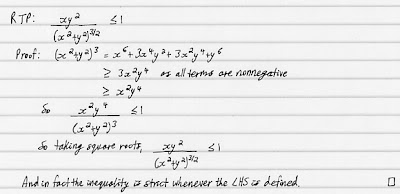 RTP: xy²/(x²+y²)^{3/2} ≤ 1
Proof: (x²+y²)³ = x⁶+3x⁴y²+3x²y⁴+y⁶
≥ 3x²y⁴ as all terms are nonnegative
≥ x²y⁴
So x²y⁴/(x²+y²)³ ≤ 1
So taking square roots, xy²/(x²+y²)^{3/2} ≤ 1
And in fact the inequality is strict whenever the LHS is defined. □